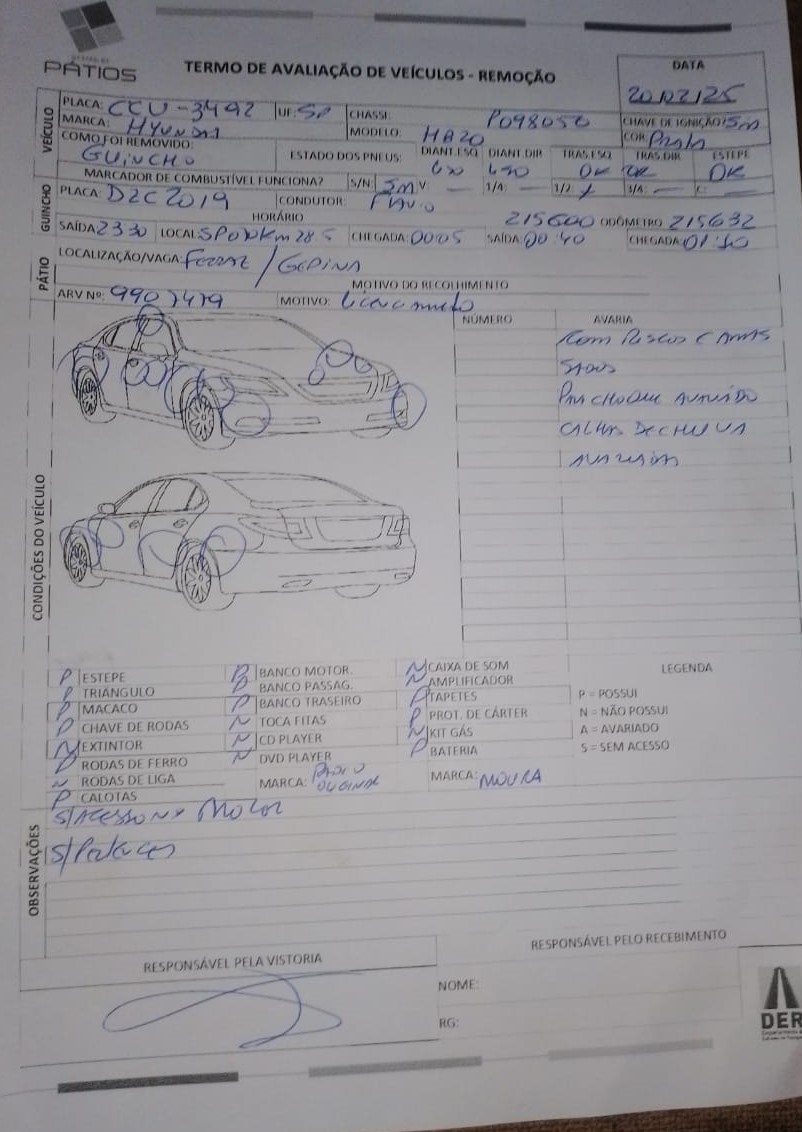 PÁTIOS
TERMO DE AVALIAÇÃO DE VEÍCULOS - REMOÇÃO
DATA
20/02/25
VEÍCULO
PLACA: CCU-3492 UF: SP CHASSI: P098050 CHAVE DE IGNIÇÃO? Sim
MARCA: HYUNDAI MODELO: HB20 COR: Prata
COMO FOI REMOVIDO: GUINCHO ESTADO DOS PNEUS: DIANT.ESQ DIANT.DIR TRAS.ESQ TRAS.DIR ESTEPE
OK OK OK
MARCADOR DE COMBUSTÍVEL FUNCIONA? S/N: Sim V: — 1/4: — 1/2: 3/4: — C: —
GUINCHO
PLACA: D2C2019 CONDUTOR:
HORÁRIO 215600 ODÔMETRO 215632
SAÍDA: 2330 LOCAL: CHEGADA: 0005 SAÍDA: 00:40 CHEGADA: 01:10
PÁTIO
LOCALIZAÇÃO/VAGA: FERRAZ /
MOTIVO DO RECOLHIMENTO
ARV Nº: MOTIVO: licenciamento
CONDIÇÕES DO VEÍCULO
NÚMERO AVARIA
Com Riscos e AMAS
SADOS
PARACHOQUE AVARIADO
CALHAS DE CHUVA
AVARIADAS
P ESTEPE P BANCO MOTOR. N CAIXA DE SOM LEGENDA
P TRIÂNGULO P BANCO PASSAG. N AMPLIFICADOR
P MACACO P BANCO TRASEIRO P TAPETES P = POSSUI
P CHAVE DE RODAS N TOCA FITAS P PROT. DE CÁRTER N = NÃO POSSUI
N EXTINTOR N CD PLAYER N KIT GÁS A = AVARIADO
P RODAS DE FERRO N DVD PLAYER P BATERIA S = SEM ACESSO
N RODAS DE LIGA MARCA: RADIO ORIGINAL MARCA: MOURA
P CALOTAS
OBSERVAÇÕES
S/ACESSO Nº MOTOR
S/Pertences
RESPONSÁVEL PELA VISTORIA
RESPONSÁVEL PELO RECEBIMENTO
NOME:
RG:
DER